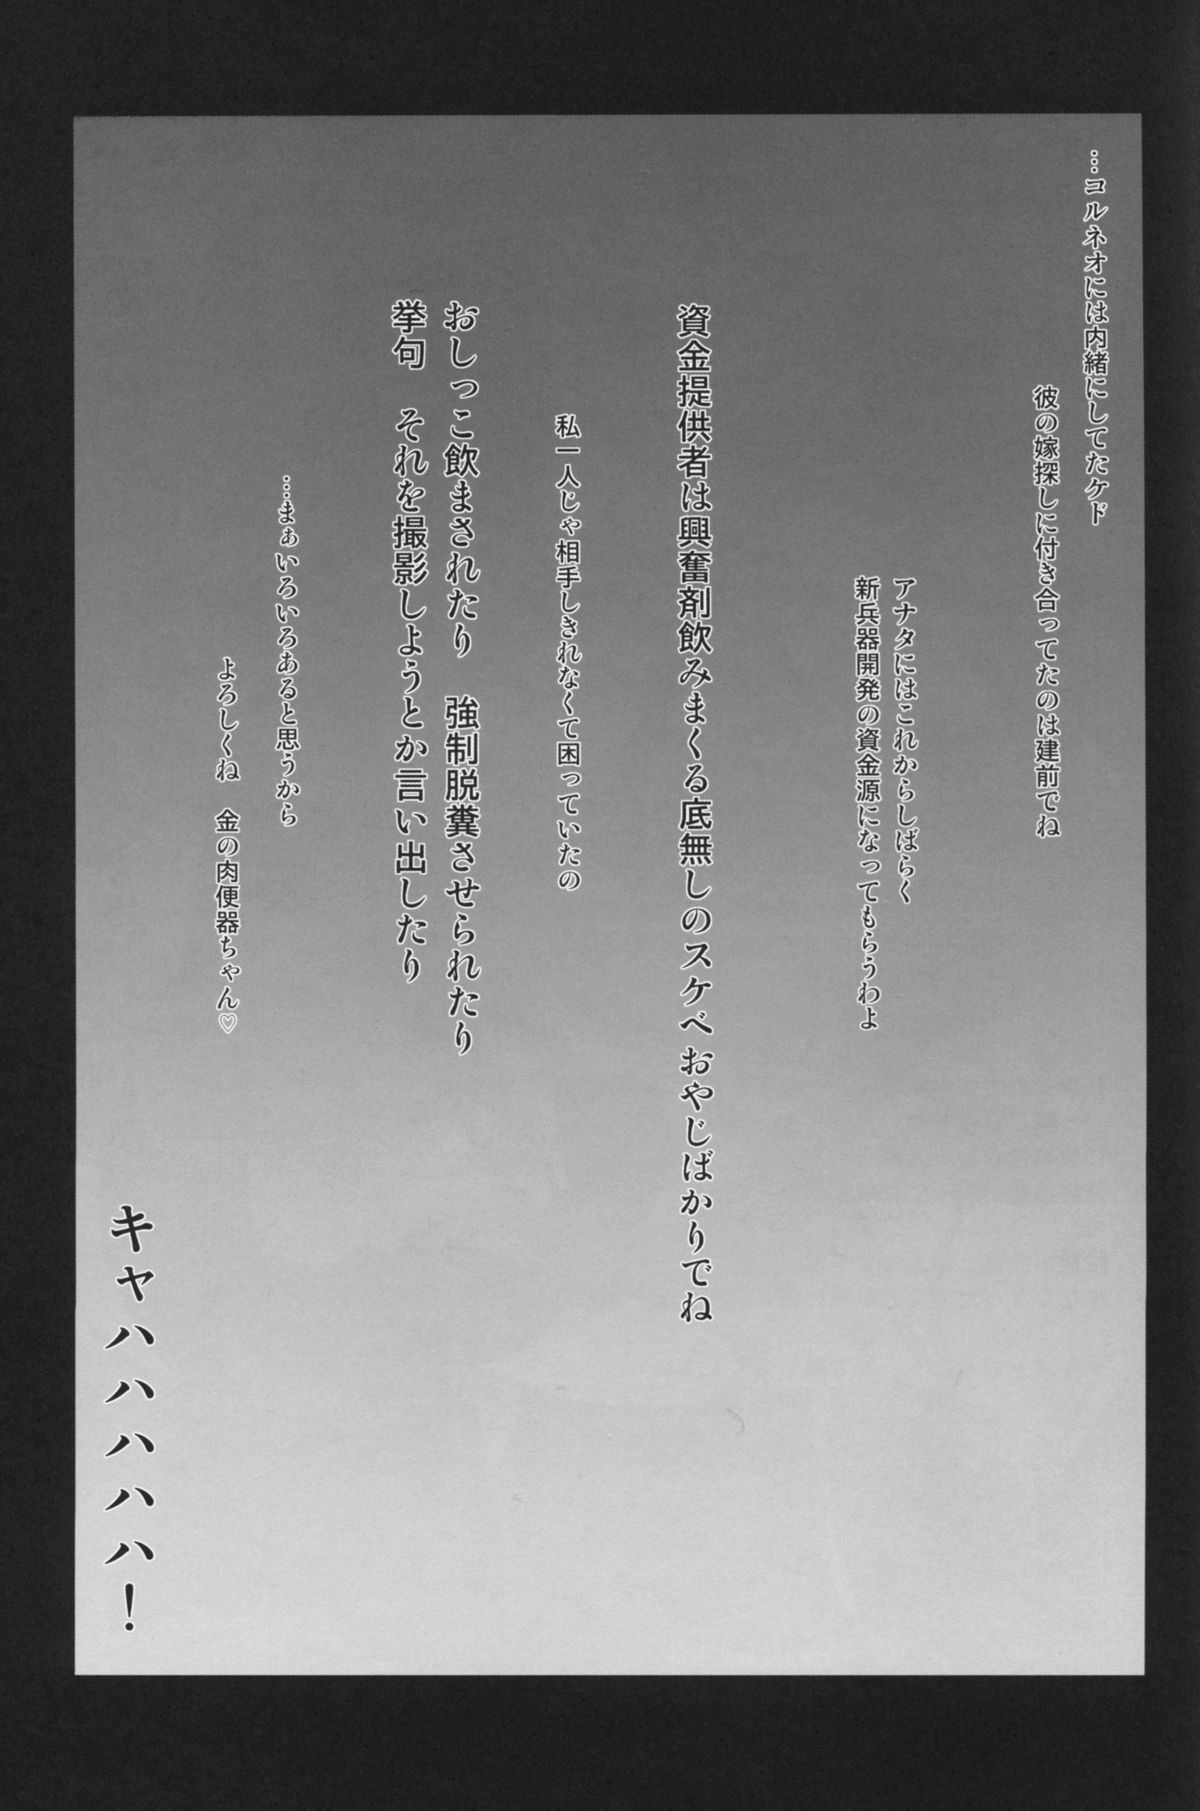 …コルネオには内緒にしてたケド
彼の嫁探しに付き合ってたのは建前でね
アナタにはこれからしばらく
新兵器開発の資金源になってもらうわよ
資金提供者は興奮剤飲みまくる底無しのスケベおやじばかりでね
私一人じゃ相手しきれなくて困っていたの
おしっこ飲まされたり　強制脱糞させられたり
挙句　それを撮影しようとか言い出したり
…まぁいろいろあると思うから
よろしくね　金の肉便器ちゃん♡
キャハハハハハ！